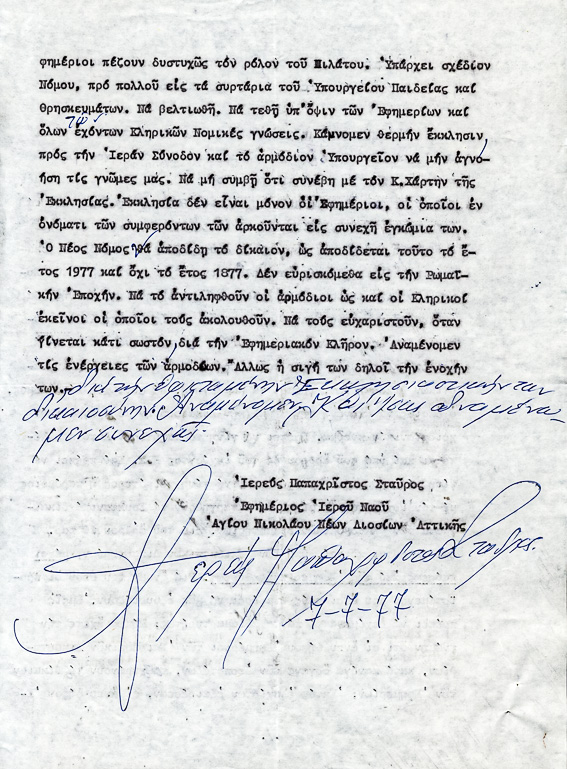 φημέριοι πέζουν δυστυχῶς τόν ρόλον τοῦ Πιλάτου. Ὑπάρχει σχέδιον
Νόμου, πρό πολλοῦ εἰς τά συρτάρια τοῦ Ὑπουργείου Παιδείας καί
θρησκευμάτων. Νά βελτιωθῇ. Νά τεθῇ ὑπ' ὄψιν τῶν Ἐφημερίων καί
ὅλων τῶν ἐχόντων Κληρικῶν Νομικές γνώσεις. Κάμνομεν θερμήν ἔκκλησιν,
πρός τήν Ἱεράν Σύνοδον καί τό ἁρμόδιον Ὑπουργεῖον νά μήν ἀγνο-
ήση τίς γνῶμες μας. Νά μή συμβῇ ὅτι συνέβη μέ τόν Κ.Χάρτην τῆς
Ἐκκλησίας. Ἐκκλησία δέν εἶναι μόνον οἱ Ἐφημέριοι, οἱ ὁποῖοι ἐν
ὀνόματι τῶν συμφερόντων τῶν ἀρκοῦνται εἰς συνεχῆ ἐγκώμια των.
Ὁ Νέος Νόμος νά ἀποδίδῃ τό δίκαιον, ὡς ἀποδίδεται τοῦτο τό ἔ-
τος 1977 καί ὄχι τό ἔτος 1877. Δέν εὑρισκόμεθα εἰς τήν Ρωμαϊ-
κήν Ἐποχήν. Νά τό ἀντιληφθοῦν οἱ ἁρμόδιοι ὡς καί οἱ Κληρικοί
ἐκεῖνοι οἱ ὁποῖοι τούς ἀκολουθοῦν. Νά τούς εὐχαριστοῦν, ὅταν
γίνεται κάτι σωστόν, διά τήν Ἐφημεριακόν Κλῆρον. Ἀναμένομεν
τίς ἐνέργειες τῶν ἁρμοδίων. Ἄλλως ἡ σιγή των δηλοῖ τήν ἐνοχήν
των. διά τήν ὑφισταμένην Ἐκκλησιαστικήν των
δικαιοσύνην. Ἀναμένομεν. Καί ἴσως ἀναμένο-
μεν συνεχῶς.
Ἱερεύς Παπαχρῖστος Σταῦρος
Ἐφημέριος Ἱεροῦ Ναοῦ
Ἁγίου Νικολάου Νέων Λιοσίων Ἀττικῆς
Ἱερεύς Παπαχρῖστος Σταῦρος.
7-7-77